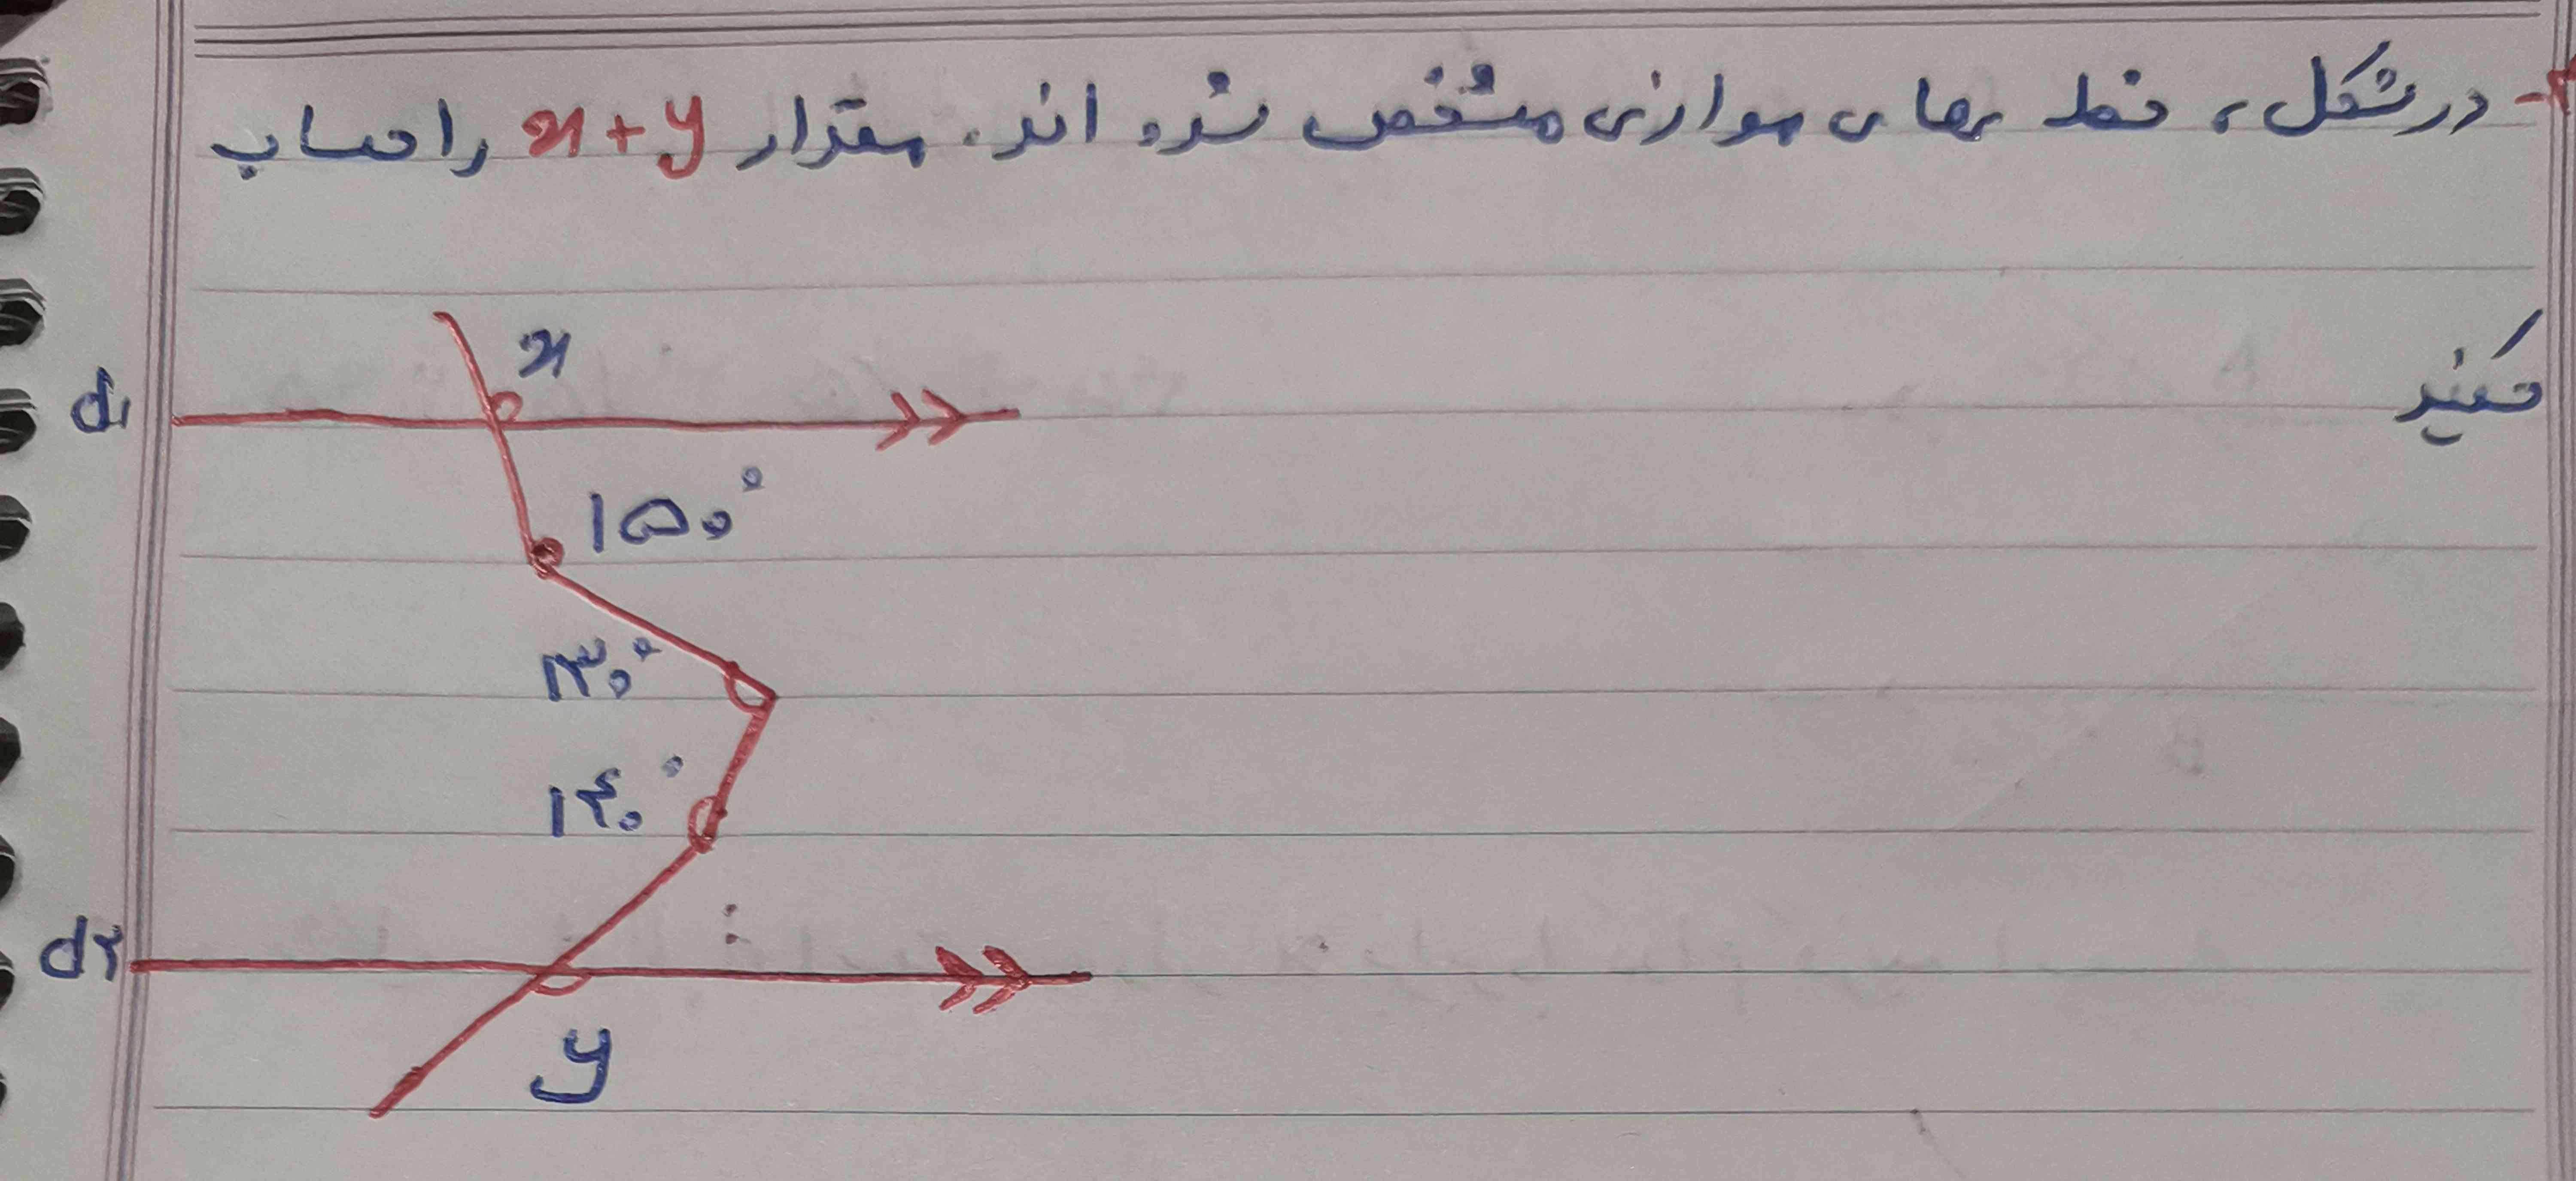 ۲- در شکل، خط های موازی مشخص شده اند. مقدار x+y را حساب
کنید
x
d۱
۱۵۰°
۱۳۰°
۱۴۰°
d۲
y